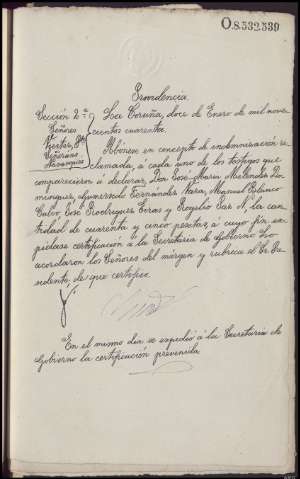 O.8.532.539
Providencia
Sección 2.ª La Coruña, doce de Enero de mil nove
Señores cientos cuarenta.
Abónese en concepto de indemnización re
clamada, a cada uno de los testigos que
comparecieron á declarar, Don José María Melendez Do
minguez, Gumersindo Fernández Vara, Manuel Blanco
José Rodriguez y Rogelio Paz N. la can
tidad de cuarenta y cinco pesetas, á cuyo fin ex
pídase certificación á la Secretaría de Gobierno. Lo
acordaron los Señores del margen y rubrica el Sr. Pre
sidente, de que certifico.
En el mismo día se expedió á la Secretaría de
Gobierno la certificación prevenida.